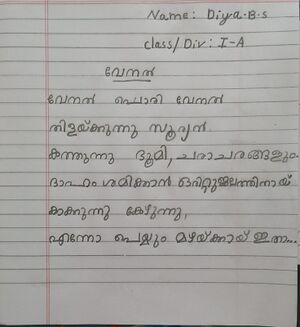 Name: Diya.B.S
class/Div: I-A
വേനൽ
വേനൽ പൊരി വേനൽ
തിളയ്ക്കുന്നു സൂര്യൻ.
കത്തുന്നു ഭൂമി, ചരാചരങ്ങളും.
ദാഹം ശമിക്കാൻ ഒരിറ്റുജലത്തിനായ്
കാക്കുന്നു കേഴുന്നു,
എന്നോ പെയ്യും മഴയ്ക്കായ്